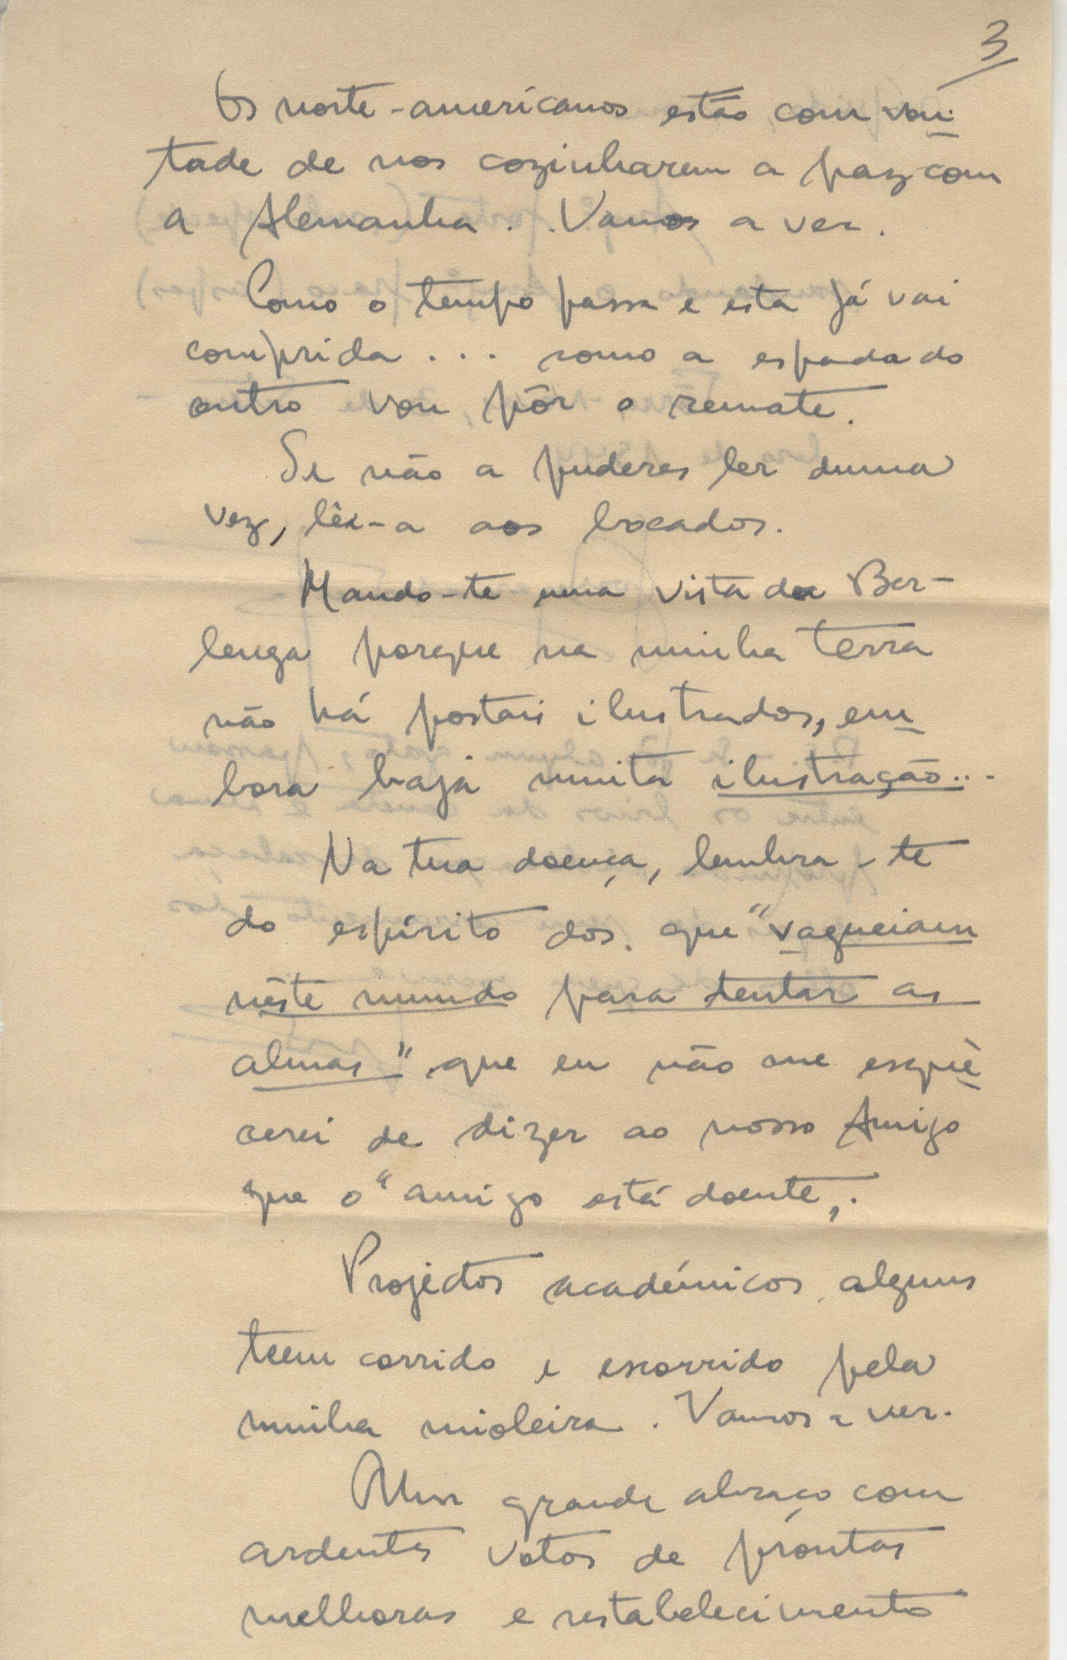 3
Os norte-americanos estão com von-
tade de nos cozinharem a paz com
a Alemanha. . Vamos a ver.
Como o tempo passa e esta já vai
comprida ... como a espada do
outro vou pôr o remate.
Se não a puderes ler duma
vez, lêr-a aos bocados.
Mando-te uma vista da Ber-
lenga porque na minha terra
não há postais ilustrados, em-
bora haja muita ilustração...
Na tua doença, lembra-te
do espírito dos. que "vagueiam
nêste mundo para tentar as
almas" que eu não me esquè-
cerei de dizer ao nosso Amigo
que o "amigo está doente„.
Projectos académicos alguns
teem corrido e escorrido pela
minha mioleira. Vamos a ver.
Um grande abraço com
ardentes votos de prontas
melhoras e restabelecimento